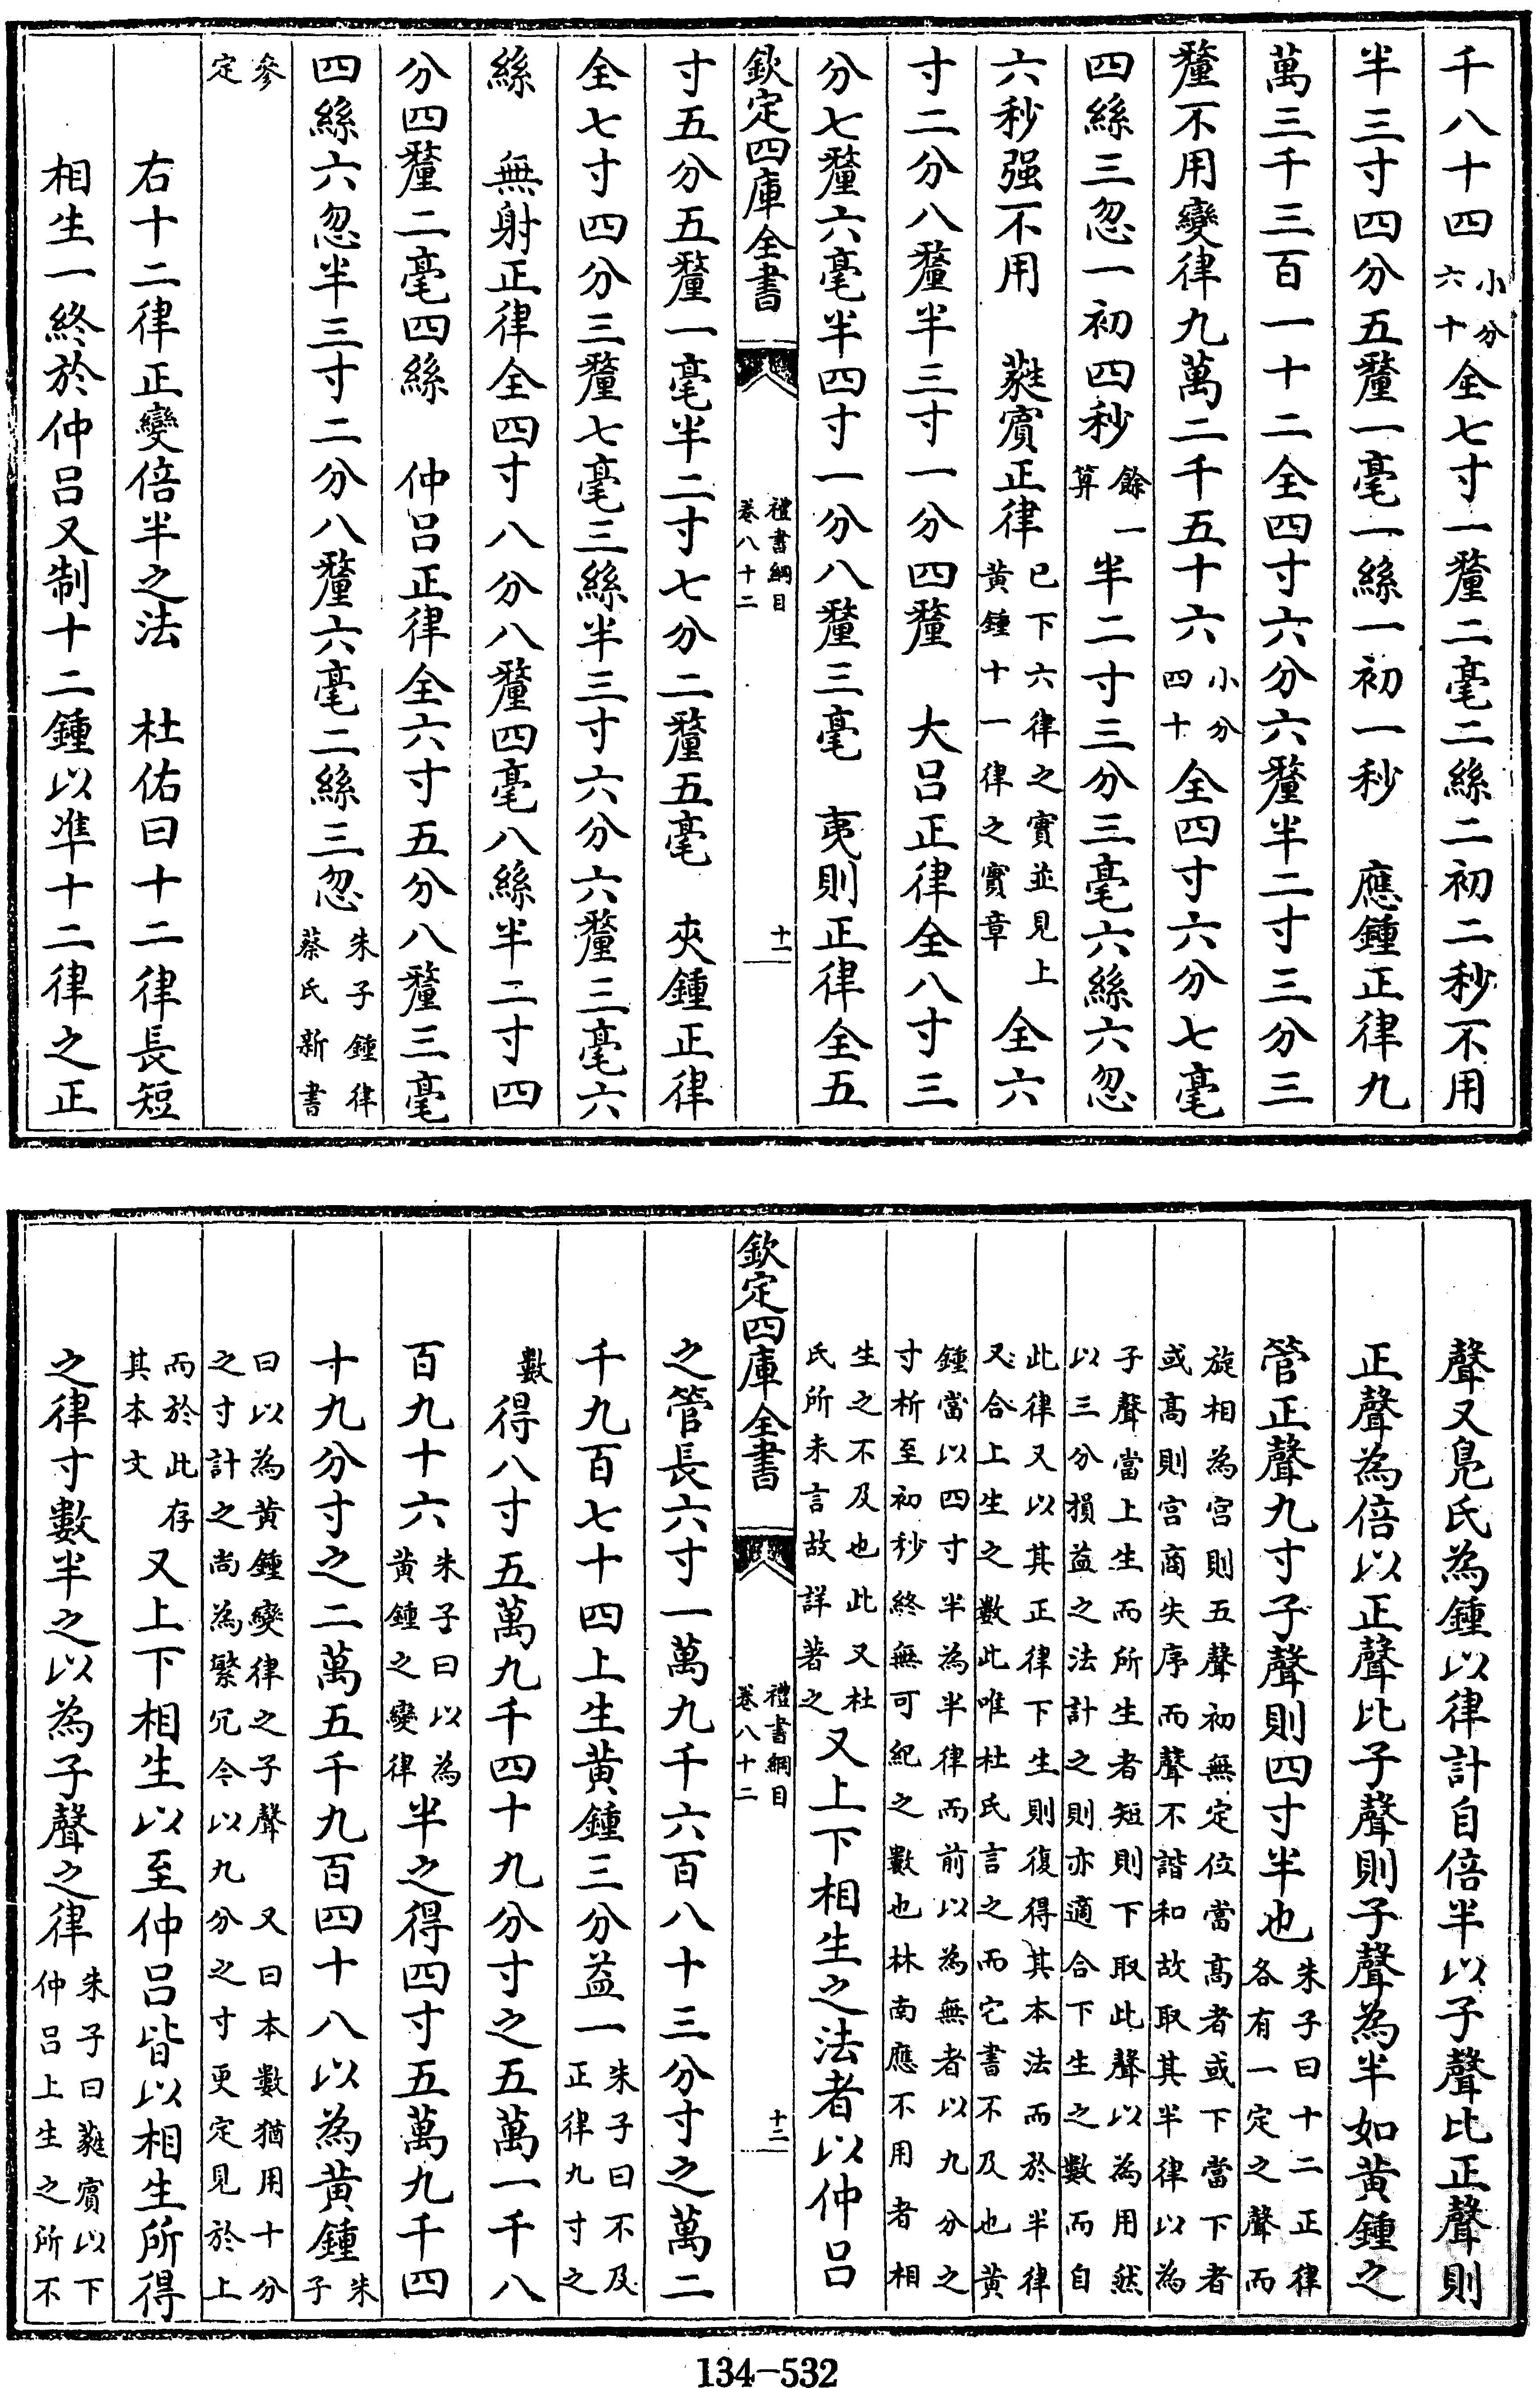 千八十四小分六十全七寸一釐二毫二絲二初二秒不用
半三寸四分五釐一毫一絲一初一秒　應鍾正律九
萬三千三百一十二全四寸六分六釐半二寸三分三
釐不用變律九萬二千五十六小分四十全四寸六分七毫
四絲三忽一初四秒餘一算半二寸三分三毫六絲六忽
六秒强不用　蕤賓正律已下六律之實並見上黃鍾十一律之實章全六
寸二分八釐半三寸一分四釐　大呂正律全八寸三
分七釐六毫半四寸一分八釐三毫　夷則正律全五
欽定四庫全書　禮書綱目卷八十二　十一
寸五分五釐一毫半二寸七分二釐五毫　夾鍾正律
全七寸四分三釐七毫三絲半三寸六分六釐三毫六
絲　無射正律全四寸八分八釐四毫八絲半二寸四
分四釐二毫四絲　仲呂正律全六寸五分八釐三毫
四絲六忽半三寸二分八釐六毫二絲三忽朱子鍾律蔡氏新書
參定
右十二律正變倍半之法　杜佑曰十二律長短
相生一終於仲呂又制十二鍾以準十二律之正
聲又鳧氏為鍾以律計自倍半以子聲比正聲則
正聲為倍以正聲比子聲則子聲為半如黃鍾之
管正聲九寸子聲則四寸半也朱子曰十二正律各有一定之聲而
旋相為宮則五聲初無定位當高者或下當下者或高則宮商失序而聲不諧和故取其半律以為
子聲當上生而所生者短則下取此聲以為用然以三分損益之法計之則亦適合下生之數而自
此律又以其正律下生則復得其本法而於半律又合上生之數此唯杜氏言之而它書不及也黃
鍾當以四寸半為半律而前以為無者以九分之寸析至初秒終無可紀之數也林南應不用者相
生之不及也此又杜氏所未言故詳著之又上下相生之法者以仲呂
欽定四庫全書　禮書綱目卷八十二　十二
之管長六寸一萬九千六百八十三分寸之萬二
千九百七十四上生黃鍾三分益一朱子曰不及正律九寸之
數得八寸五萬九千四十九分寸之五萬一千八
百九十六朱子曰以為黃鍾之變律半之得四寸五萬九千四
十九分寸之二萬五千九百四十八以為黃鍾朱子
曰以為黃鍾變律之子聲　又曰本數猶用十分之寸計之尚為繁冗今以九分之寸更定見於上
而於此存其本文又上下相生以至仲呂皆以相生所得
之律寸數半之以為子聲之律朱子曰蕤賓以下仲呂上生之所不
134-532